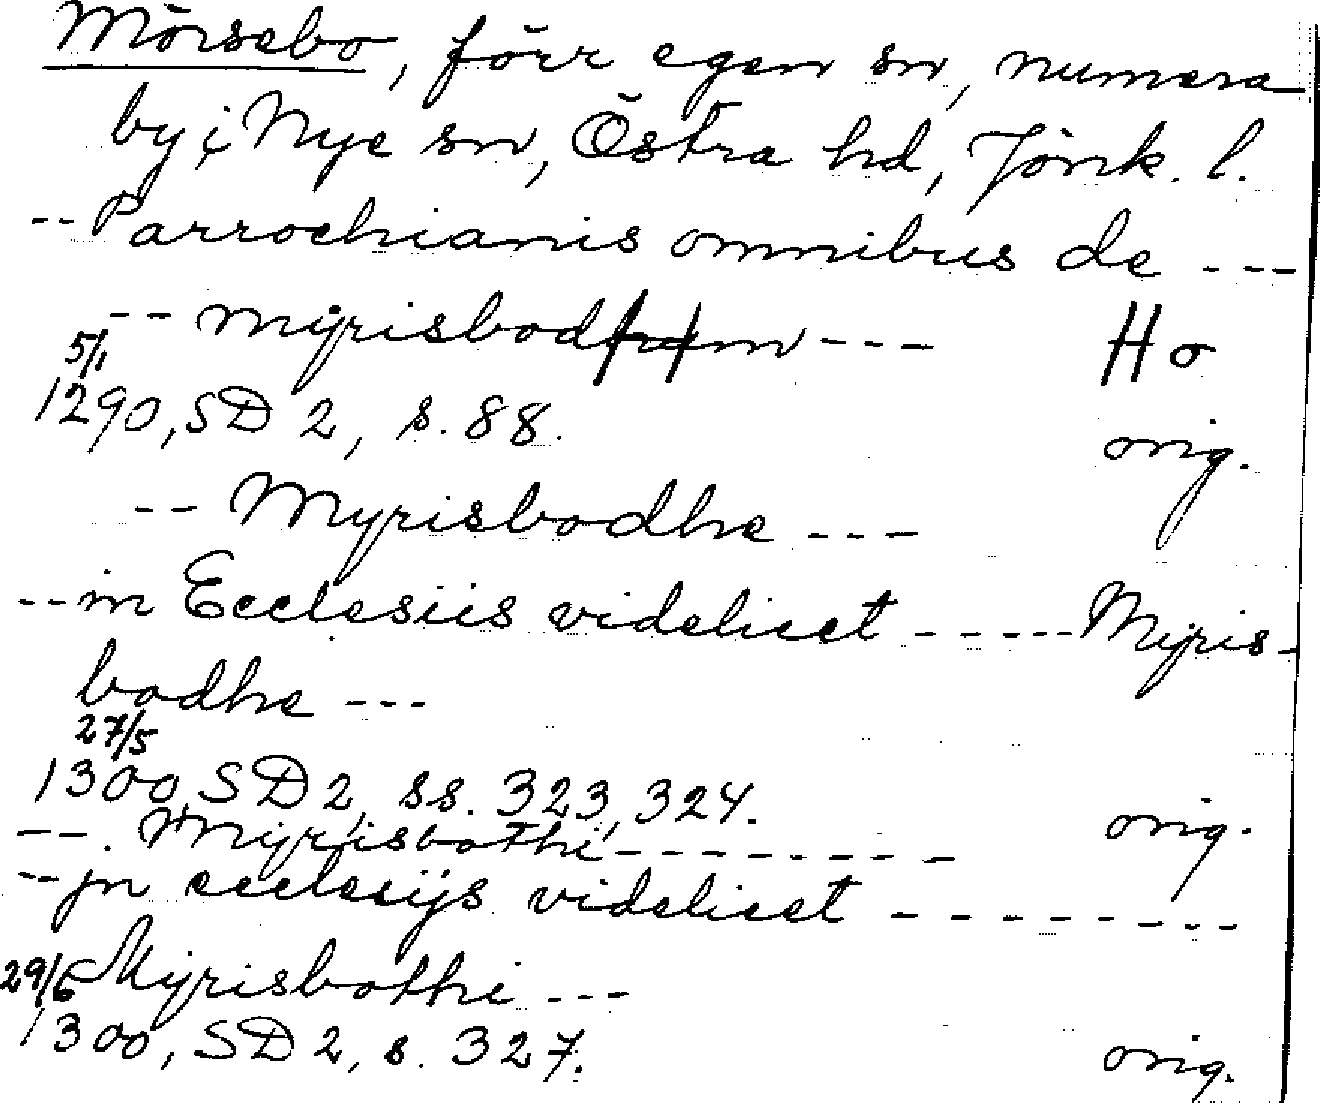 Mörsebo, förr egen sn, numera
by i Nye sn, Östra hd, Jönk. l.
-- Parrochianis omnibus de ---
-- mÿrisbodhum --- Ho
5/1
1290, SD 2, s. 88. orig.
-- Myrisbodhe ---
-- in Ecclesiis videlicet ----- Mÿris-
bodhe ---
27/5
1300, SD 2, ss. 323, 324. orig.
--. Mÿrisbothi --------
-- jn ecclesijs videlicet --------
29/6 Mÿrisbothi ---
1300, SD 2, s. 327. orig.